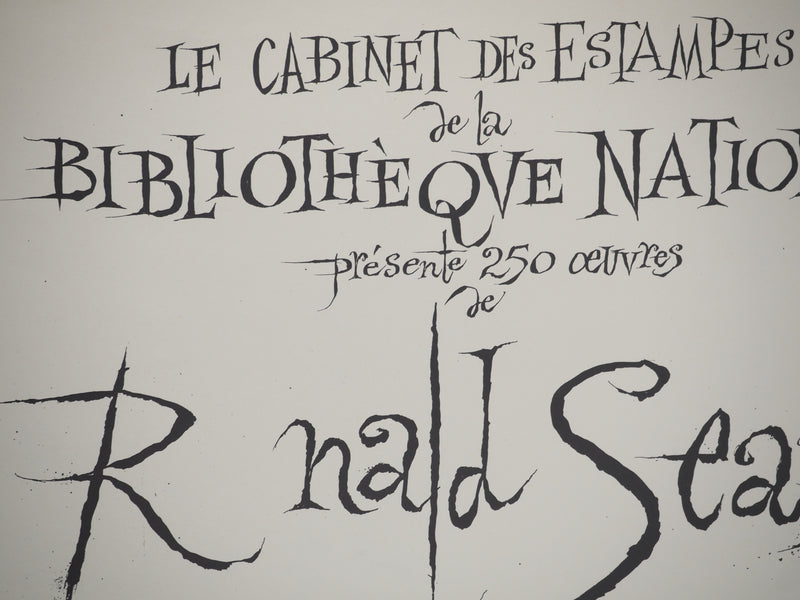 LE CABINET DES ESTAMPES
de la
BIBLIOTHÈQVE NATIO
présente 250 œuvres
de
R nald Sea